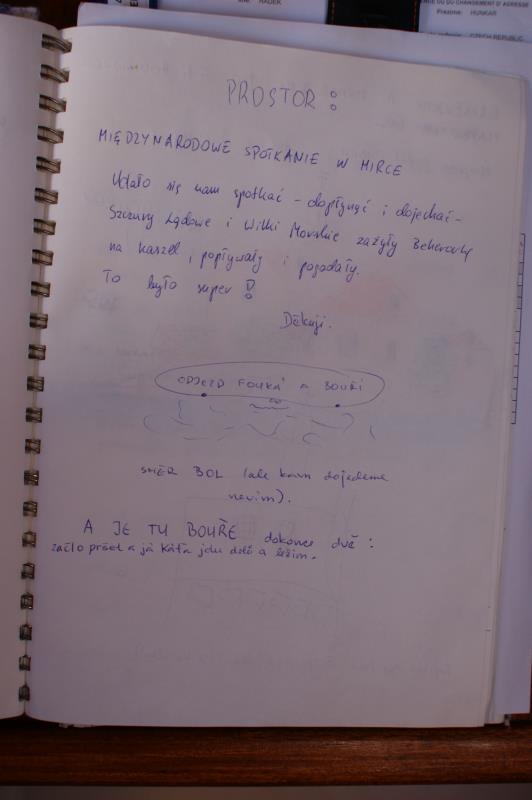 RADEK
Prezime: HUNKAR
CZECH REPUBLIC
PROSTOR :
MIĘDZYNARODOWE SPOTKANIE W MIRCE
Udało się nam spotkać - dopłynąć i dojechać -
Szczury Lądowe i Wilki Morskie zażyły Beherovky
na kaszel, popływały i pogadały.
To było super!
Děkuji.
ODJEZD FOUKÁ A BOUŘÍ
SMĚR BOL (ale kam dojedeme
nevím).
A JE TU BOUŘE dokonce dvě:
začlo pršet a já Káťa jdu dolů a ležim.